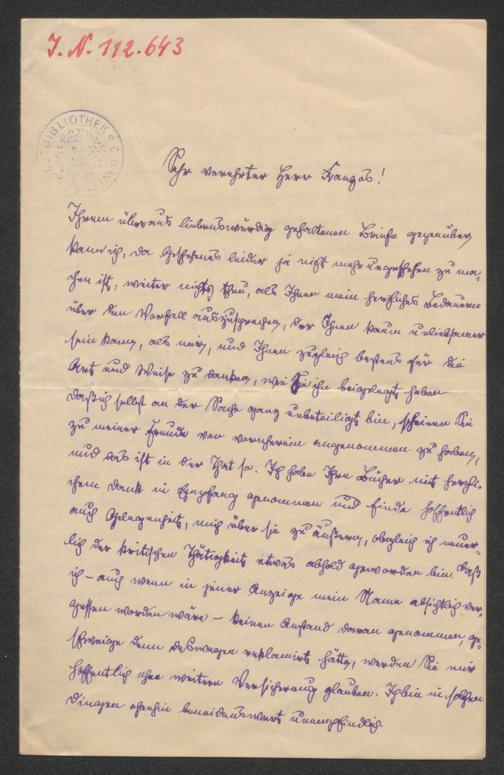 J. N. 112.643
BIBLIOTHEK
Sehr verehrter Herr Franzos!
Ihrem überaus liebenswürdig gehaltenen Briefe gegenüber
kann ich, da Geschehenes leider ja nicht mehr ungeschehen zu ma-
chen ist, weiter nichts thun, als Ihnen mein herzliches Bedauern
über den Vorfall auszusprechen, der Ihnen kaum unliebsamer
sein kann, als mir, und Ihnen zugleich bestens für die
Art und Weise zu danken, wie Sie ihn beigelegt haben.
Daß ich selbst an der Sache ganz unbeteiligt bin, scheinen Sie
zu meiner Freude von vornherein angenommen zu haben,
und das ist in der That so. Ich habe Ihre Bücher mit herzli-
chem Dank in Empfang genommen und finde hoffentlich
auch Gelegenheit, mich über sie zu äußern, obgleich ich neuer-
lich der kritischen Thätigkeit etwas abhold geworden bin. Daß
ich – auch wenn in jener Anzeige mein Name absichtlich ver-
gessen worden wäre – keinen Anstand daran genommen, ge-
schweige denn deswegen reklamirt hätte, werden Sie mir
hoffentlich ohne weitere Versicherung glauben. Ich bin in solchen
Dingen ohnehin beneidenswert unempfindlich.